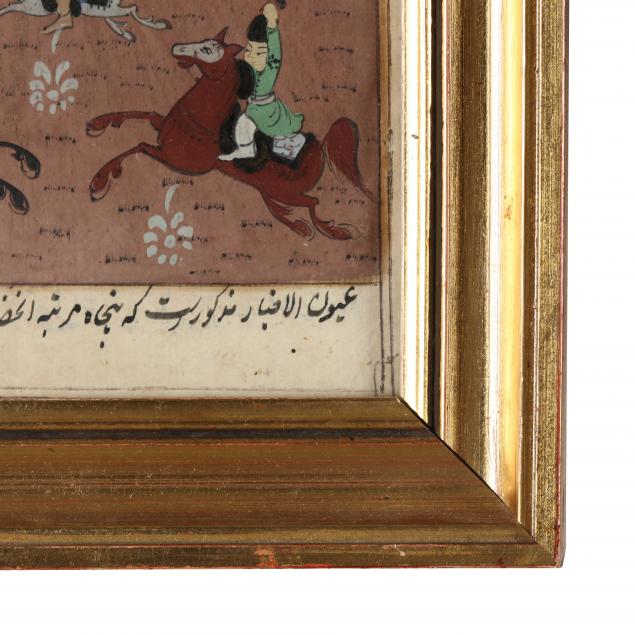 عیون الاخبار مذکورست که پنجاه مرتبه